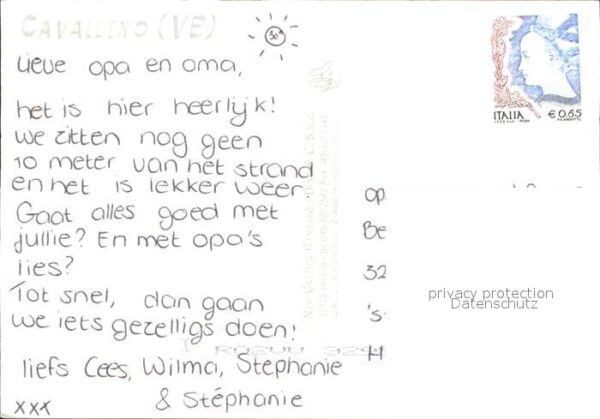 CAVALLINO (VE)
30°
Lieve opa en oma,
het is hier heerlijk!
we zitten nog geen
10 meter van het strand
en het is lekker weer.
Gaat alles goed met
jullie? En met opa's
lies?
Tot snel, dan gaan
we iets gezelligs doen!
liefs Cees, Wilma, Stephanie
& Stéphanie
xxx
ITALIA € 0,65
op
Be
32
's-
H
privacy protection
Datenschutz